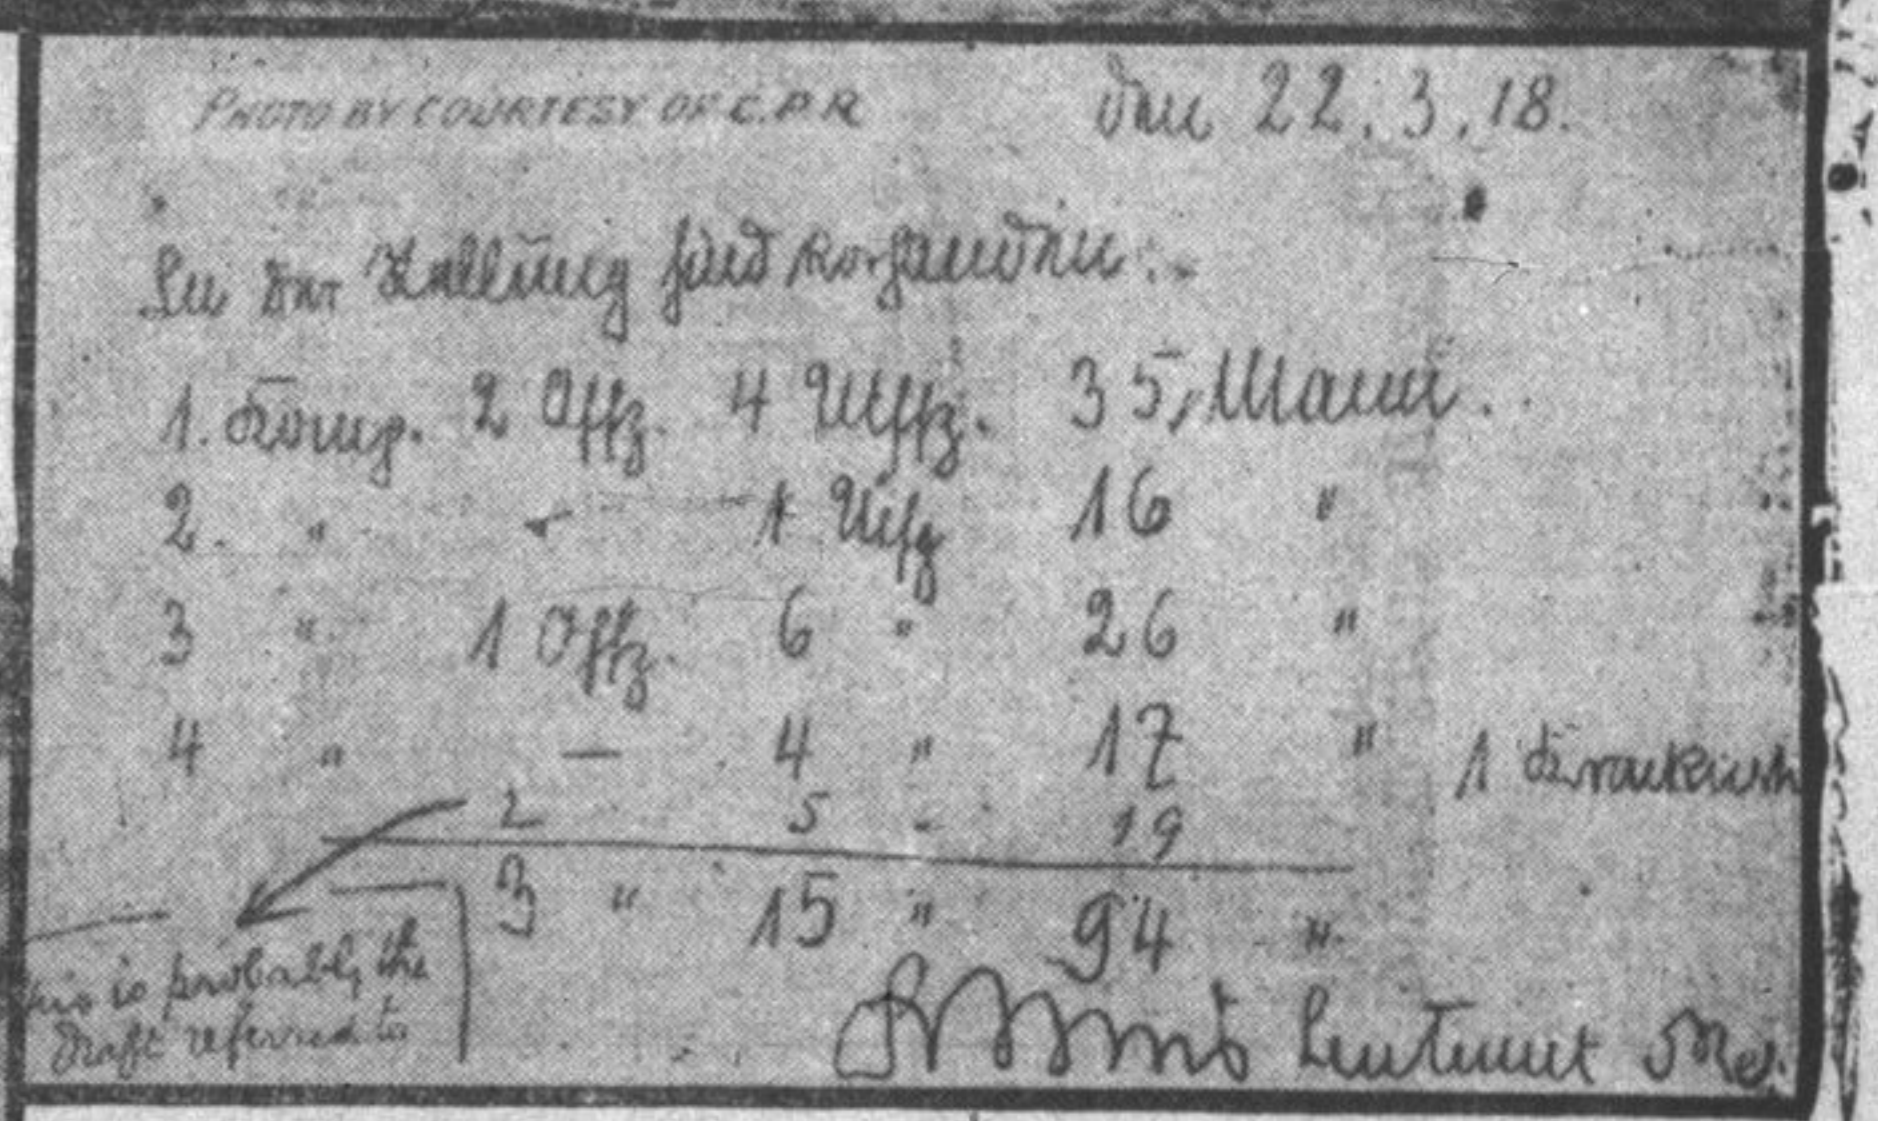 PHOTO BY COURTESY OF C.P.R
den 22.3.18.
In der Stellung sind vorhanden:-
1. Komp. 2 Offz. 4 Uffz. 35, Mann.
2. " - 1 Uffz 16 "
3 " 1 Offz. 6 " 26 "
4 " — 4 " 17 " 1 Krankentr
2 5 " 19
3 " 15 " 94 "
this is probably the
draft referred to
Leutnant